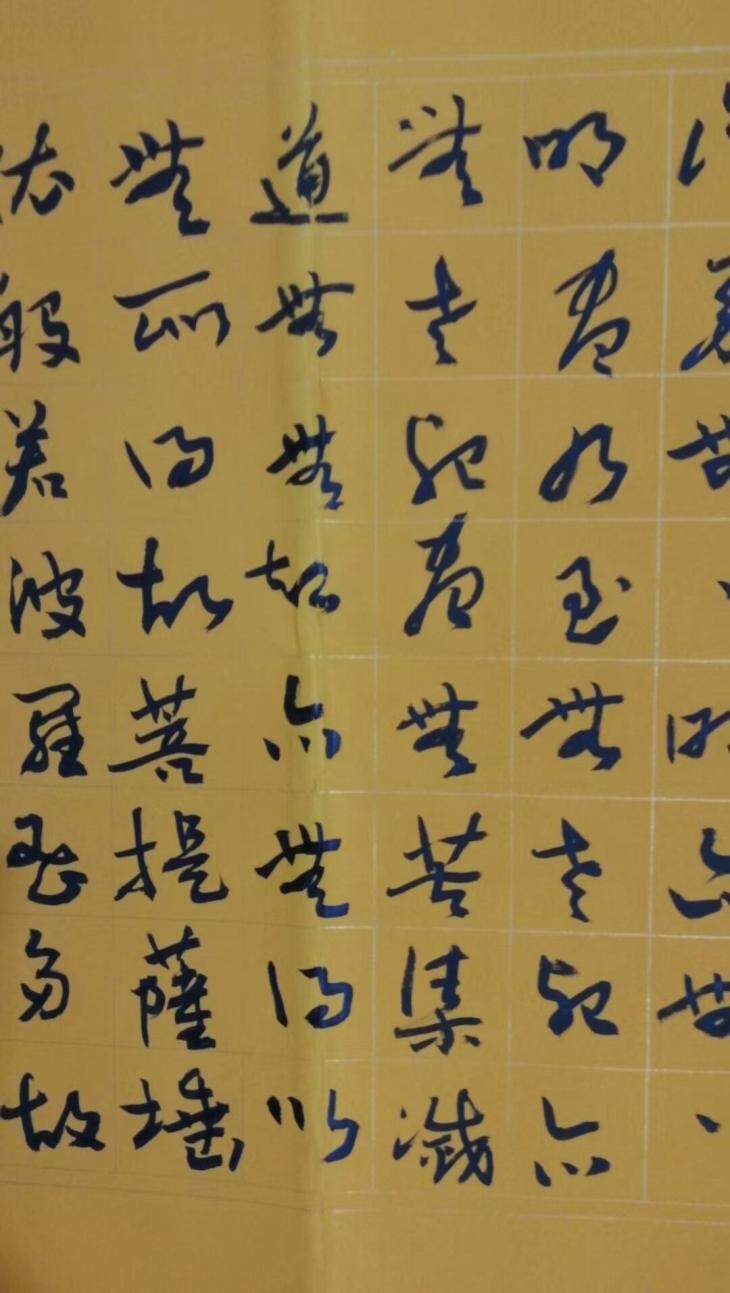 識界無、明亦無、
明盡乃至無老死亦
無老死盡無苦集滅
道無無智亦無得以
無所得故菩提薩埵
依般若波羅蜜多故